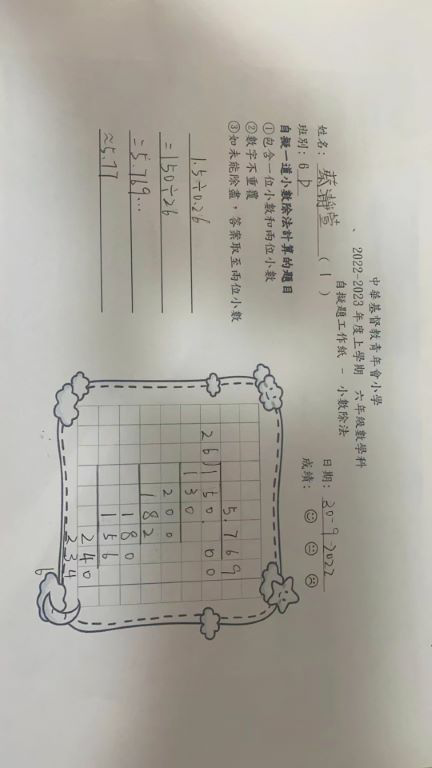 中華基督教青年會小學
2022-2023 年度上學期 六年級數學科
自擬題工作紙 - 小數除法
姓名：蔡静萱 ( 1 ) 日期：20-9-2022
班別：6D 成績：
自擬一道小數除法計算的題目
①包含一位小數和兩位小數
②數字不重覆
③如未能除盡，答案取至兩位小數
1.5÷0.26
=150÷26
=5.769...
≈5.77
5.769
26)150.00
130
200
182
180
156
240
234
6